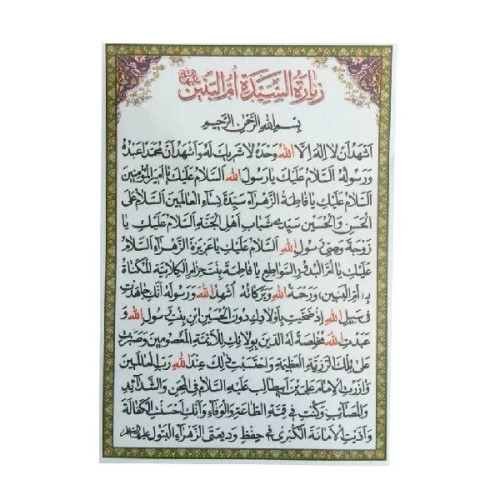 زيارة السيدة أم البنين
بسم الله الرحمن الرحيم
اشهد ان لا اله الا الله وحده لا شريك له واشهد ان محمدا عبده
ورسوله السلام عليك يا رسول الله السلام عليك يا امير المؤمنين
السلام عليك يا فاطمة الزهراء سيدة نساء العالمين السلام على
الحسن والحسين سيدي شباب اهل الجنة السلام عليك يا
زوجة وصي رسول الله السلام عليك يا عزيزة الزهراء السلام
عليك يا ام البدور السواطع يا فاطمة بنت حزام الكلابية المكناة
بـ ام البنين ورحمة الله وبركاته اشهد الله ورسوله انك جاهدت
في سبيل الله اذ ضحيت باولادك دون الحسين ابن بنت رسول الله و
عبدت الله مخلصة له الدين بولائك للائمة المعصومين وصبرت
على تلك الرزية العظيمة واحتسبت ذلك عند الله رب العالمين
وآزرت الامام علي بن ابي طالب عليه السلام في المحن والشدائد
والمصائب وكنت في قمة الطاعة والوفاء وانك احسنت الكفالة
وأديت الأمانة الكبرى في حفظ وديعتي الزهراء البتول